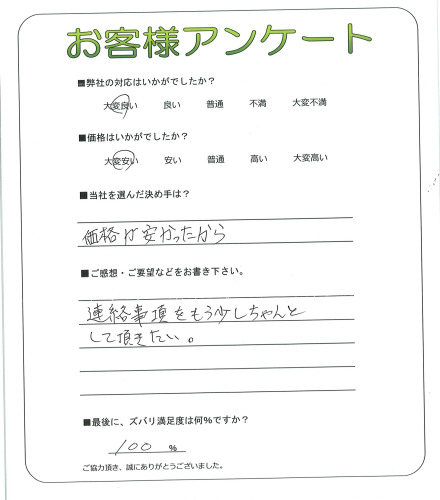 お客様アンケート
■弊社の対応はいかがでしたか？
大変良い 良い 普通 不満 大変不満
■価格はいかがでしたか？
大変安い 安い 普通 高い 大変高い
■当社を選んだ決め手は？
価格が安かったから
■ご感想・ご要望などをお書き下さい。
連絡事項をもう少しちゃんと
して頂きたい。
■最後に、ズバリ満足度は何％ですか？
100 ％
ご協力頂き、誠にありがとうございました。